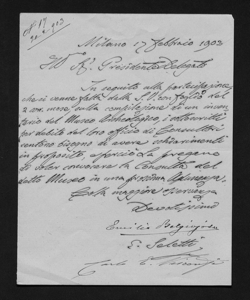 Milano 17 Febbraio 1903
Ill. Presidente Delegato
In seguito alla partecipazione
che ci venne fatta dalla S.V. con foglio del
2 con. verso sulla compilazione di un inven
tario del Museo Archeologico i sottoscritti
per debito del loro officio di Consultori
sentono bisogno di avere schiarimenti
in proposito, epperciò La pregano
di voler convocare la Consulta del
detto Museo in una prossima adunanza.
Colla maggiore osservanza
Devotissimi
Emilio
E. Seletti
Carlo E.